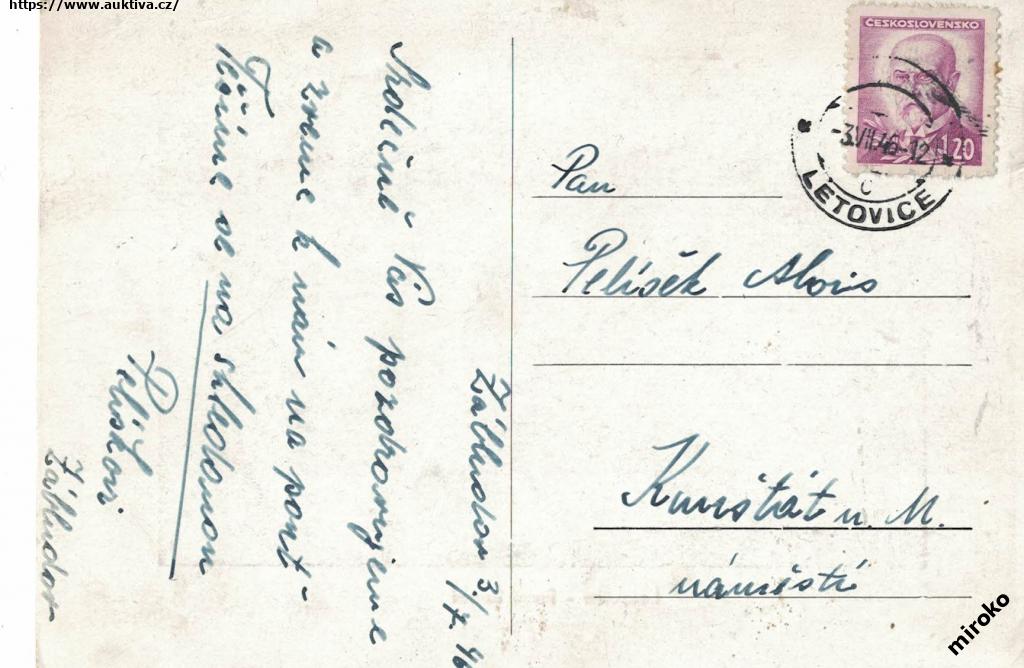 https://www.auktiva.cz/
ČESKOSLOVENSKO
1.20
-3.VII.46-12
C
LETOVICE
Pan
Pelíšek Alois
Kunštát n. M.
náměstí
Žábludov 3./7. 46
Srdečně Vás pozdravujeme
a zveme k nám na pouť-
Těšíme se na shledanou
Pelíškovi
Žábludov
miroko